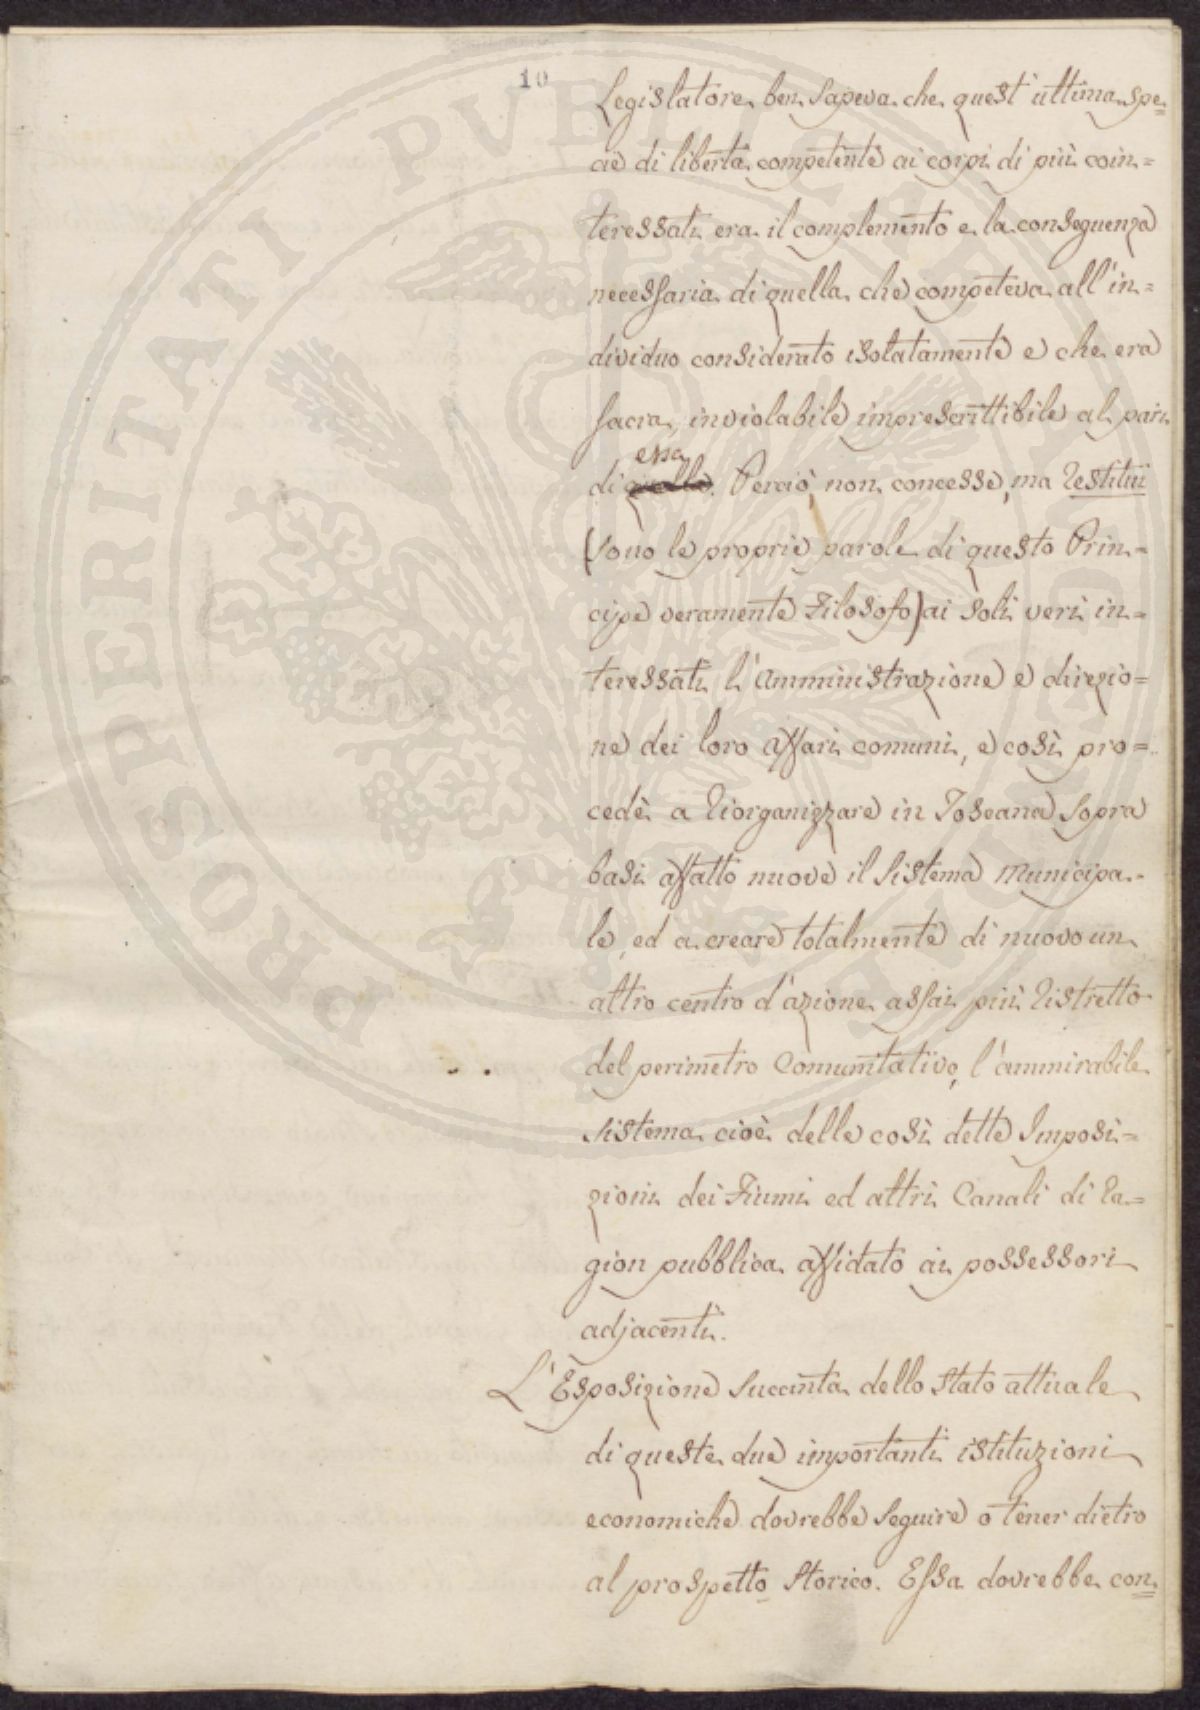 10
Legislatore ben sapeva che quest'ultima spe=
cie di libertà competente ai corpi di più coin=
teressati era il complemento e la conseguenza
necessaria di quella che competeva all'in=
dividuo considerato isolatamente e che era
sacra, inviolabile imprescrittibile al pari
essa
di quella. Perciò, non concesse, ma restituì
(sono le proprie parole di questo Prin=
cipe veramente Filosofo) ai soli veri in=
teressati l'Amministrazione e direzio=
ne dei loro affari comuni, e così pro=
cedè a riorganizzare in Toscana sopra
basi affatto nuove il sistema municipa=
le, ed a creare totalmente di nuovo un
altro centro d'azione assai più ristretto
del perimetro Comunitativo, l'ammirabile
sistema cioè delle così dette Imposi=
zioni dei Fiumi ed altri Canali di ra=
gion pubblica affidato ai possessori
adjacenti.
L'Esposizione succinta dello stato attuale
di queste due importanti istituzioni
economiche dovrebbe seguire o tener dietro
al prospetto storico. Essa dovrebbe con=
PROSPERITATI PVBLICAE AVGENDAE